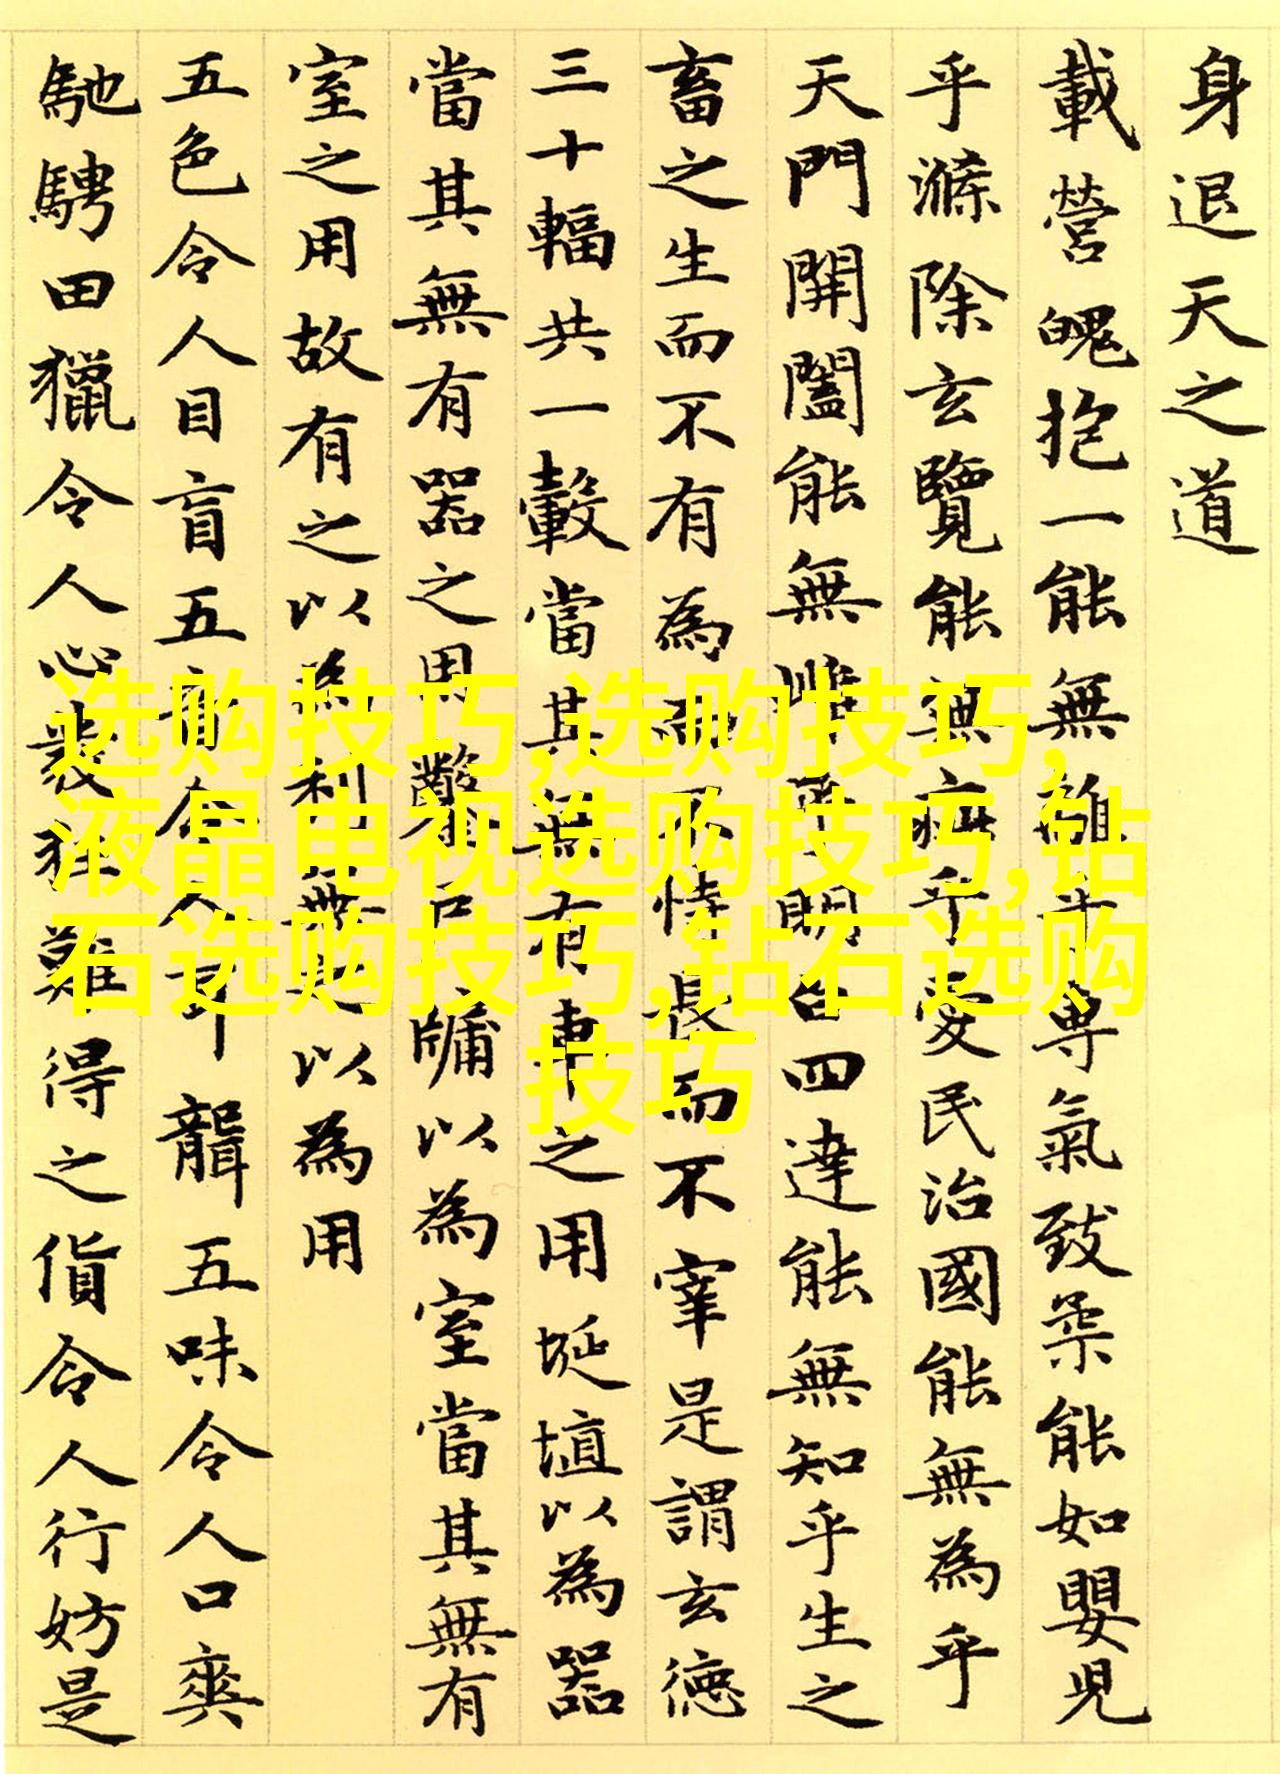 身退天之道
載營魄抱一能無離乎専氣致柔能如嬰兒
乎滌除玄覽能無疵乎愛民治國能無為乎
天門開闔能無雌乎明白四達能無知乎生之
畜之生而不有為而不恃長而不宰是謂玄德
三十輻共一轂當其無有車之用埏埴以為器
當其無有器之用鑿戶牖以為室當其無有
室之用故有之以為利無之以為用
五色令人目盲五音令人耳聾五味令人口爽
馳騁田獵令人心發狂難得之貨令人行妨是
选购技巧,选购技巧,
液晶电视选购技巧,钻
石选购技巧,钻石选购
技巧